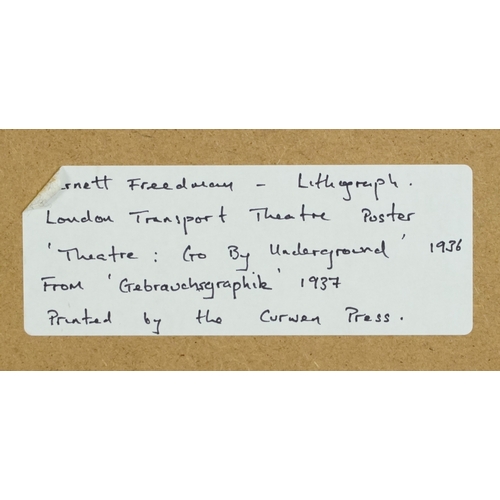 rnett Freedman - Lithograph.
London Transport Theatre Poster
'Theatre: Go By Underground' 1936
From 'Gebrauchsgraphik' 1937
Printed by the Curwen Press.